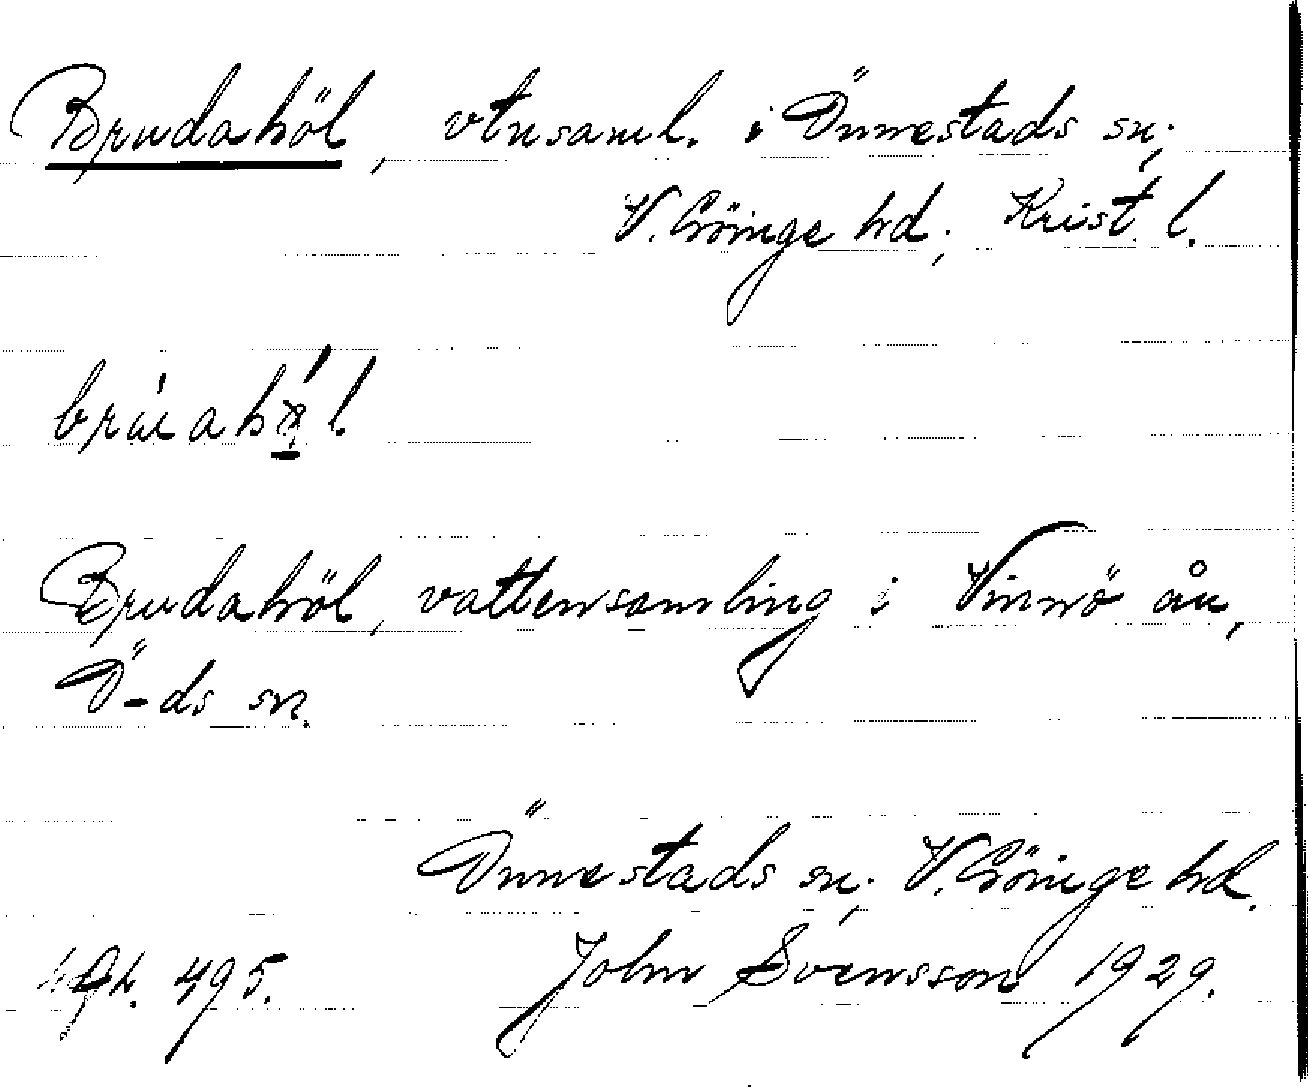 Brudahöl, vtnsaml. i Önnestads sn;
V. Göinge hd; Krist. l.
Brudahöl, vattensamling i Vinnö ån,
Ö-ds sn.
Önnestads sn; V. Göinge hd.
495. John Svensson 1929.